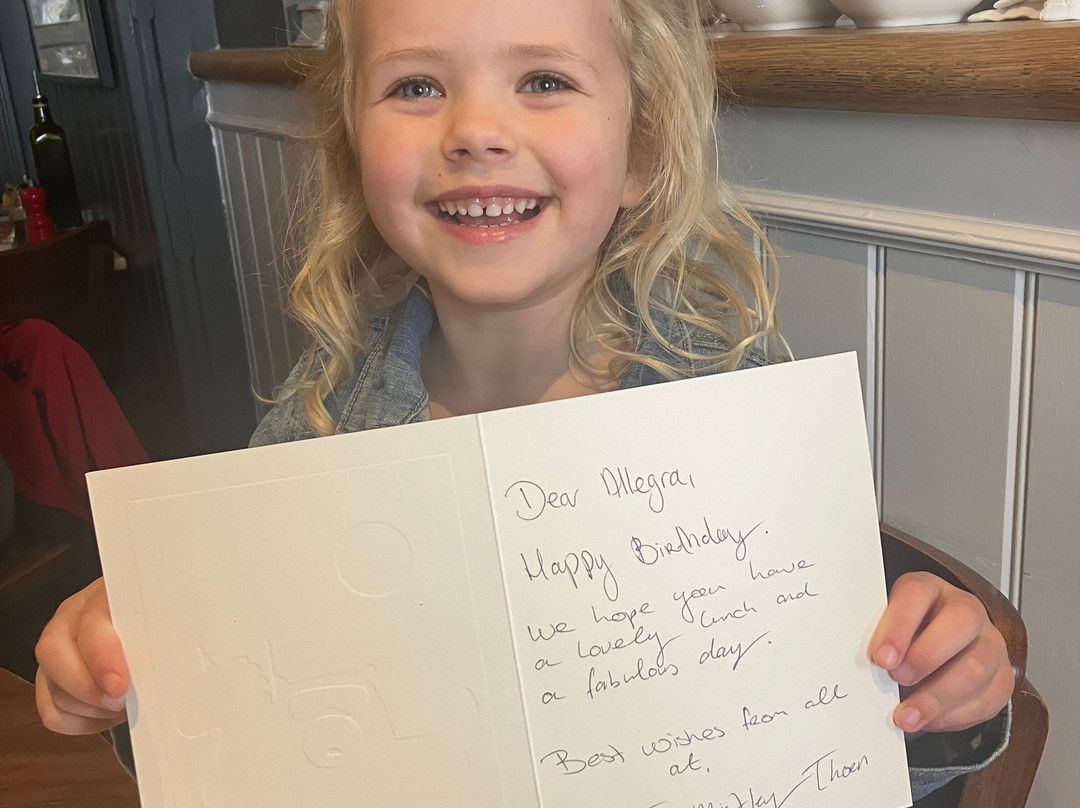 Dear Allegra,
Happy Birthday.
We hope you have
a lovely lunch and
a fabulous day.
Best wishes from all
at,
Mistley Thorn